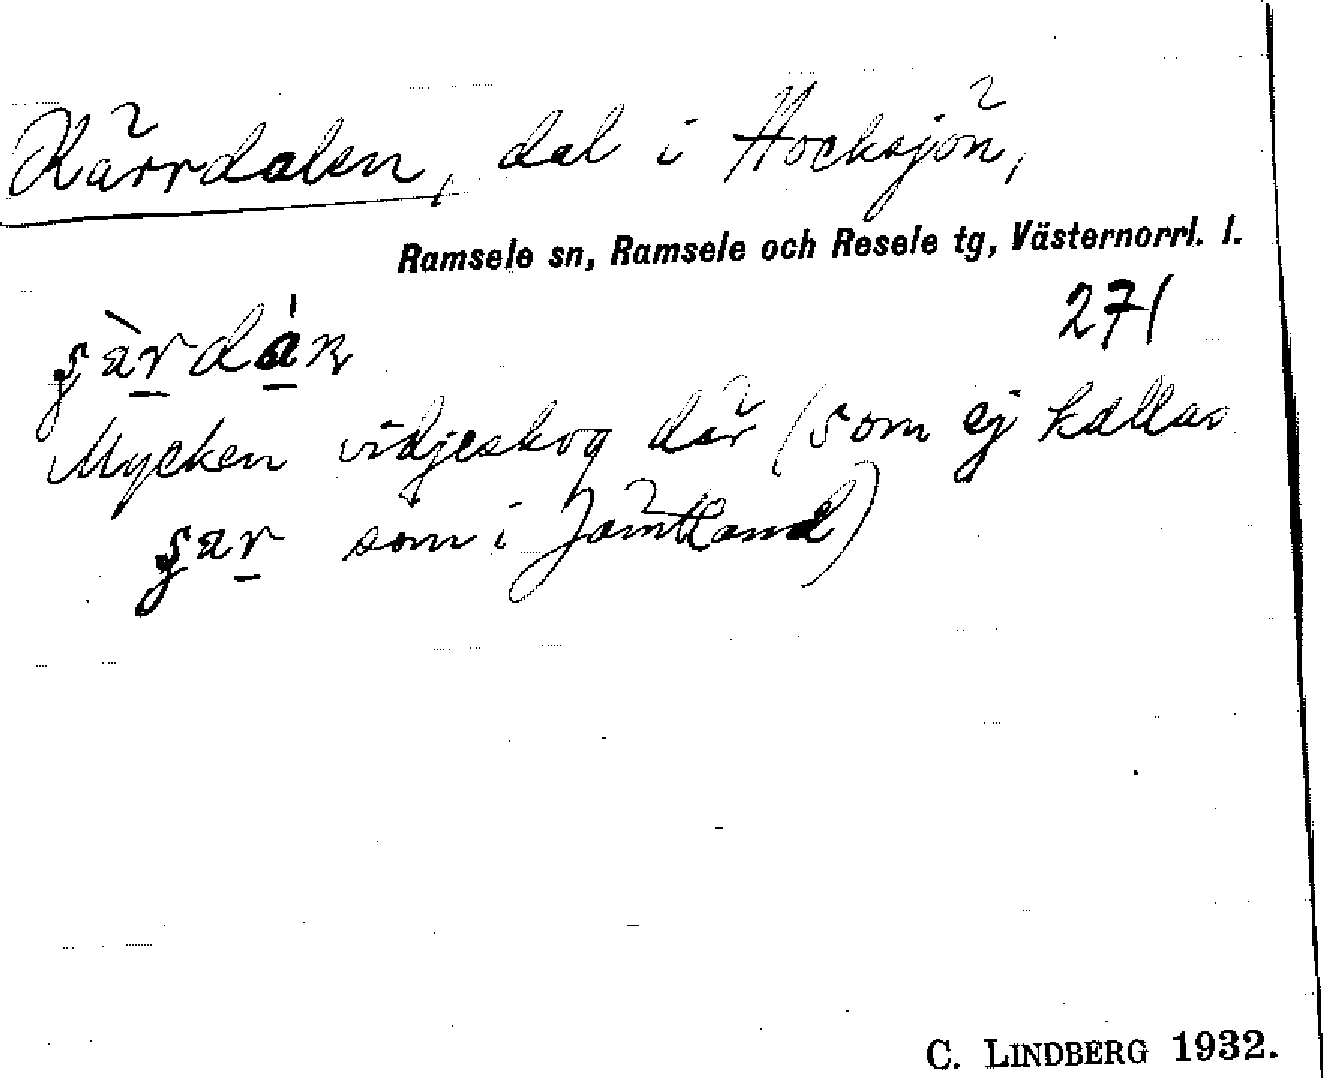 Kärrdalen, dal i Hocksjön,
Ramsele sn, Ramsele och Resele tg, Västernorrl. l.
271
Mycken vidjeskog där (som ej kallas
som i Jämtland)
C. LINDBERG 1932.